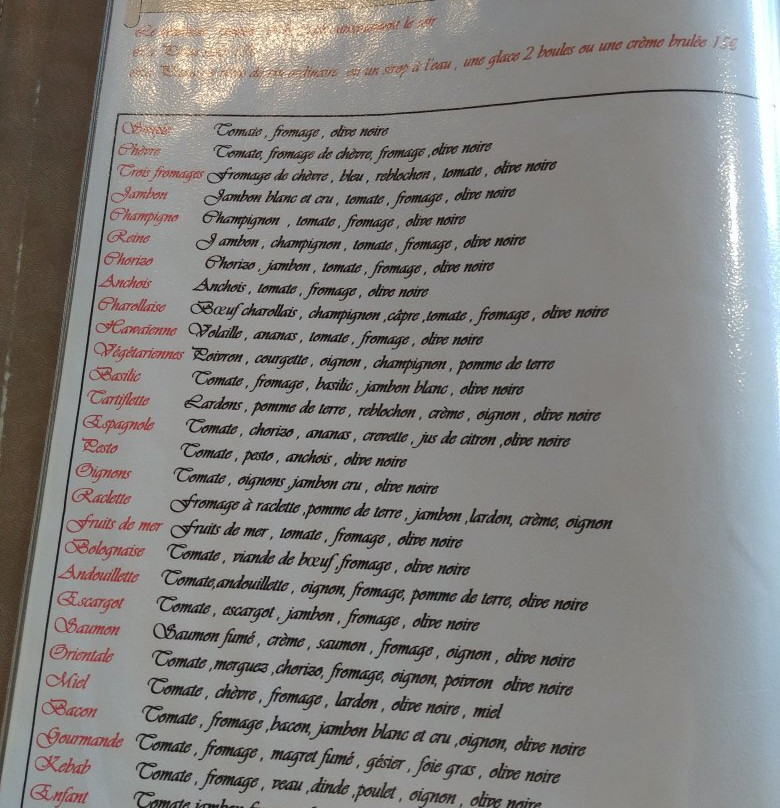 le soir
ou un sirop à l'eau , une glace 2 boules ou une crème brulée 15€
Tomate , fromage , olive noire
Chèvre Tomate, fromage de chèvre, fromage ,olive noire
Trois fromages Fromage de chèvre , bleu , reblochon , tomate , olive noire
Jambon Jambon blanc et cru , tomate , fromage , olive noire
Champigno Champignon , tomate , fromage , olive noire
Reine J ambon , champignon , tomate , fromage , olive noire
Chorizo Chorizo , jambon , tomate , fromage , olive noire
Anchois Anchois , tomate , fromage , olive noire
Charollaise Bœuf charollais , champignon ,câpre ,tomate , fromage , olive noire
Hawaïenne Volaille , ananas , tomate , fromage , olive noire
Végétariennes Poivron , courgette , oignon , champignon , pomme de terre
Basilic Tomate , fromage , basilic , jambon blanc , olive noire
Tartiflette Lardons , pomme de terre , reblochon , crème , oignon , olive noire
Espagnole Tomate , chorizo , ananas , crevette , jus de citron ,olive noire
Pesto Tomate , pesto , anchois , olive noire
Oignons Tomate , oignons ,jambon cru , olive noire
Raclette Fromage à raclette ,pomme de terre , jambon ,lardon, crème, oignon
Fruits de mer Fruits de mer , tomate , fromage , olive noire
Bolognaise Tomate , viande de bœuf ,fromage , olive noire
Andouillette Tomate,andouillette , oignon, fromage, pomme de terre, olive noire
Escargot Tomate , escargot , jambon , fromage , olive noire
Saumon Saumon fumé , crème , saumon , fromage , oignon , olive noire
Orientale Tomate ,merguez ,chorizo, fromage, oignon, poivron olive noire
Miel Tomate , chèvre , fromage , lardon , olive noire , miel
Bacon Tomate , fromage ,bacon, jambon blanc et cru ,oignon, olive noire
Gourmande Tomate , fromage , magret fumé , gésier , foie gras , olive noire
Kebab Tomate , fromage , veau ,dinde ,poulet , oignon , olive noire
Enfant Tomate jambon